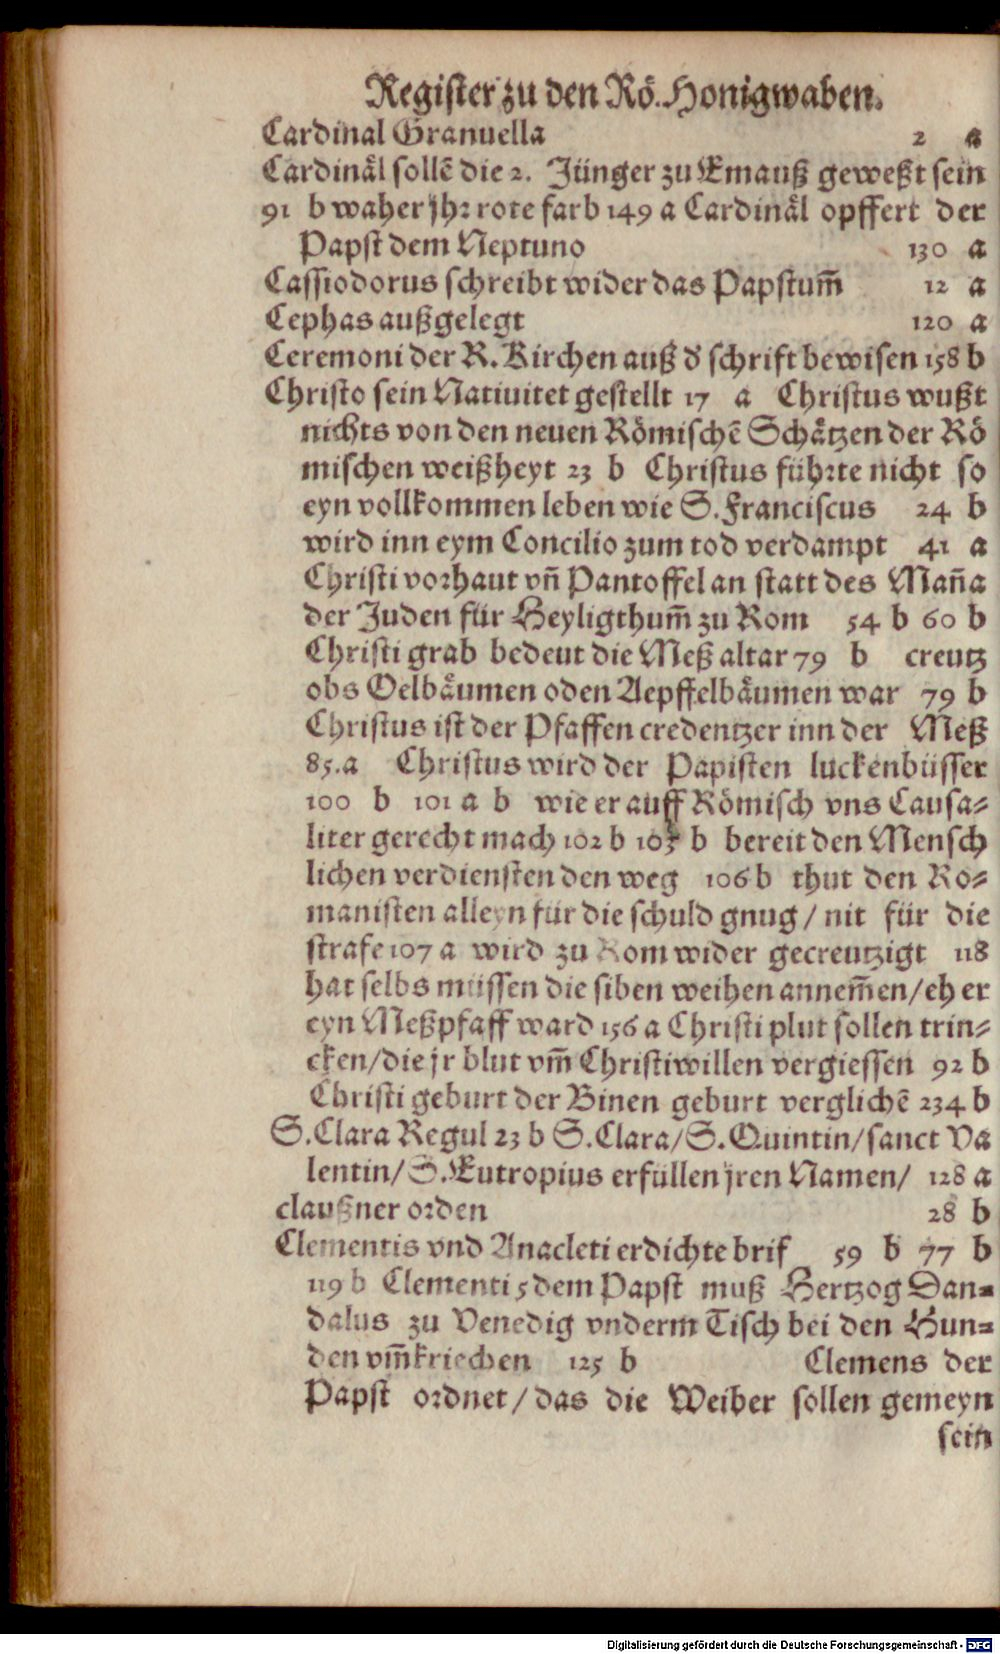 Register zu den Rö. Honigwaben.
Cardinal Granuella 2 a
Cardinäl sollē die 2. Jünger zu Emauß geweßt sein
91 b waher jhr rote farb 149 a Cardinäl opffert der
Papst dem Neptuno 130 a
Cassiodorus schreibt wider das Papstum̄ 12 a
Cephas außgelegt 120 a
Ceremoni der R. Kirchen auß d' schrift bewisen 158 b
Christo sein Natiuitet gestellt 17 a Christus wußt
nichts von den neuen Römischē Schätzen der Rö
mischen weißheyt 23 b Christus führte nicht so
eyn vollkommen leben wie S. Franciscus 24 b
wird inn eym Concilio zum tod verdampt 41 a
Christi vorhaut vn̄ Pantoffel an statt des Man̄a
der Juden für Heyligthum̄ zu Rom 54 b 60 b
Christi grab bedeut die Meß altar 79 b creutz
obs Oelbäumen oden Aepffelbäumen war 79 b
Christus ist der Pfaffen credentzer inn der Meß
85.a Christus wird der Papisten luckenbüsser
100 b 101 a b wie er auff Römisch vns Causa⸗
liter gerecht mach 102 b 103 b bereit den Mensch
lichen verdiensten den weg 106 b thut den Ro⸗
manisten alleyn für die schuld gnug / nit für die
strafe 107 a wird zu Rom wider gecreutzigt 118
hat selbs müssen die siben weihen annem̄en / eh er
eyn Meßpfaff ward 156 a Christi plut sollen trin⸗
cken / die jr blut vm̄ Christi willen vergiessen 92 b
Christi geburt der Binen geburt verglichē 234 b
S. Clara Regul 23 b S. Clara / S. Quintin / sanct Va
lentin / S. Eutropius erfüllen jren Namen / 128 a
claußner orden 28 b
Clementis vnd Anacleti erdichte brif 59 b 77 b
119 b Clementi 5 dem Papst muß Hertzog Dan⸗
dalus zu Venedig vnderm Tisch bei den Hun⸗
den vm̄kriechen 125 b Clemens der
Papst ordnet / das die Weiber sollen gemeyn
sein
Digitalisierung gefördert durch die Deutsche Forschungsgemeinschaft - DFG